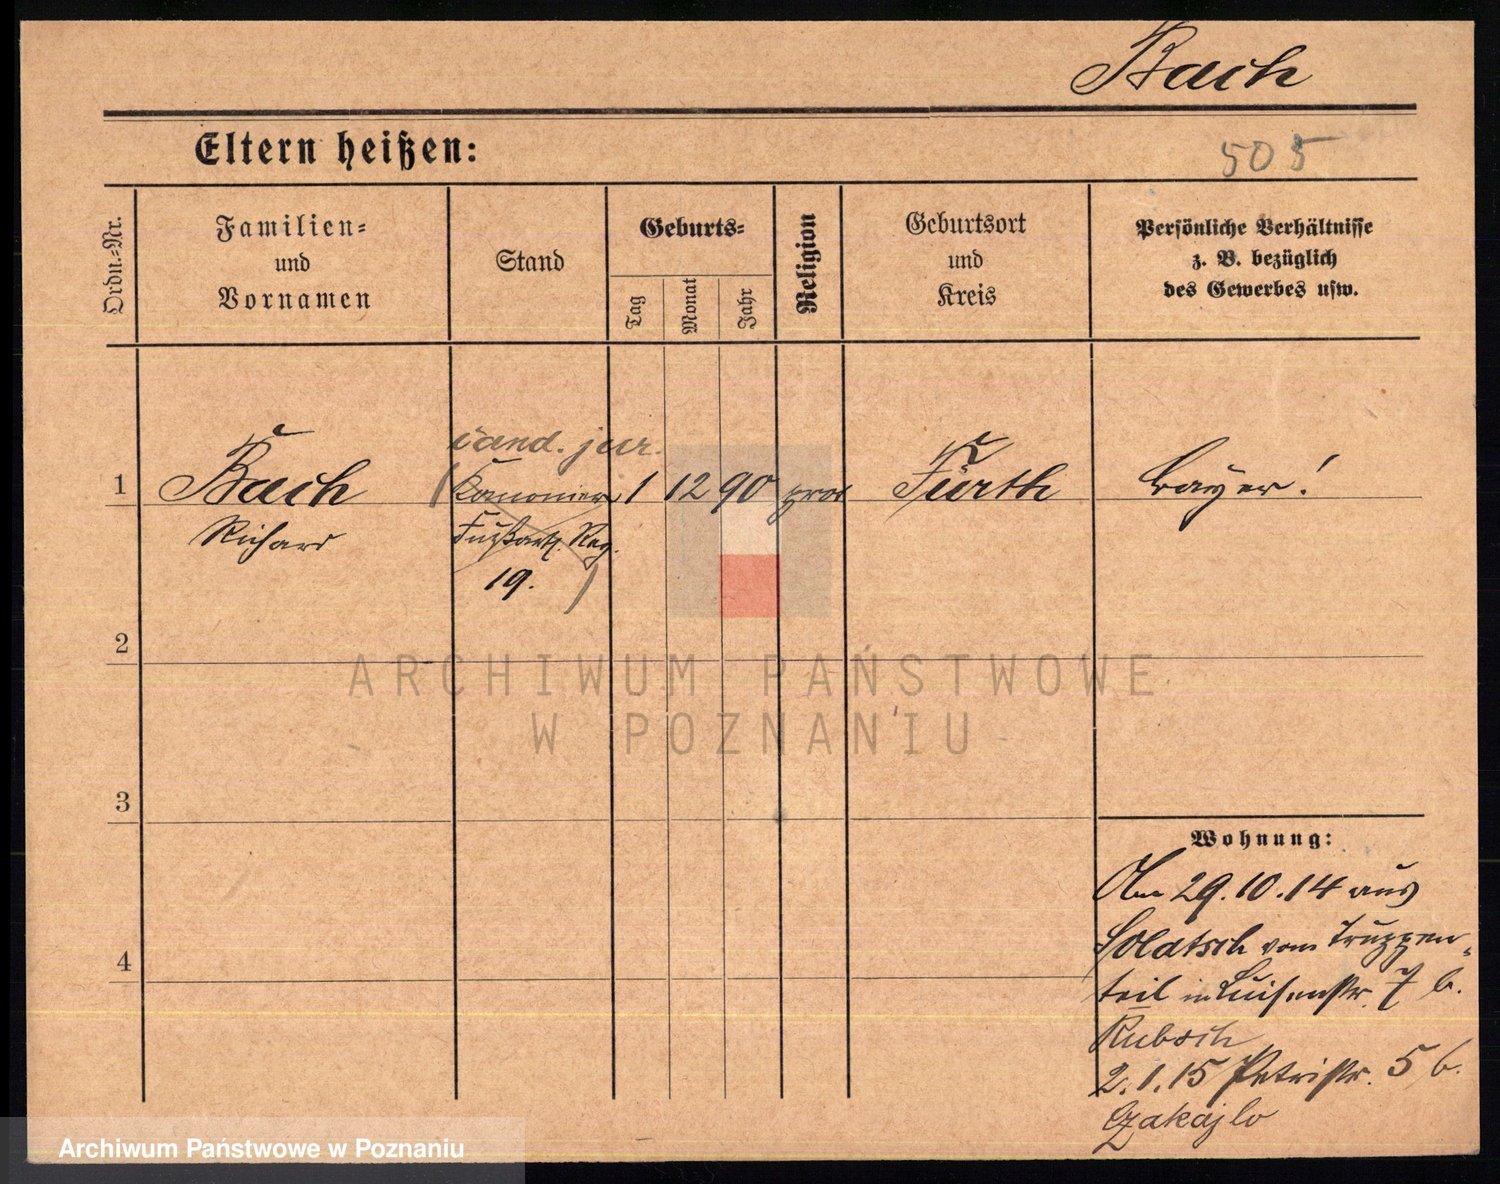 Bach
Eltern heißen:
505
Ordn.-Nr.
Familien-
und
Vornamen
Stand
Geburts-
Tag
Monat
Jahr
Religion
Geburtsort
und
Kreis
Persönliche Verhältnisse
z. B. bezüglich
des Gewerbes usw.
cand. jur.
1 Bach (Kanonier 1 12 90 prot Fürth Bayer!
Richard Fußart. Reg.
19. )
2
ARCHIWUM PAŃSTWOWE
W POZNANIU
3
Wohnung:
Am 29.10.14 aus
Solatsch vom Truppen-
4
teil in Luisenstr. 7 b.
Kubsch
2.1.15 Petristr. 5 b.
Czakajlo
Archiwum Państwowe w Poznaniu